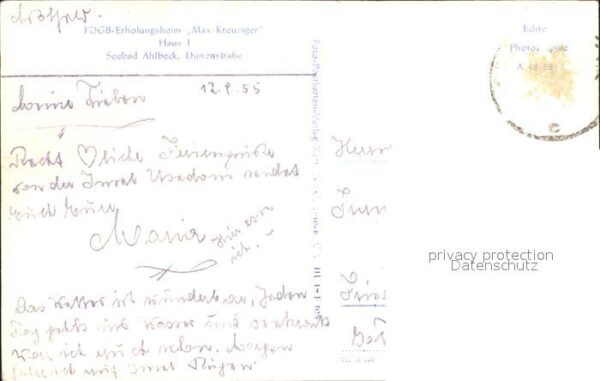 FDGB-Erholungsheim „Max Kreuziger"
Haus I
Seebad Ahlbeck, Dünenstraße
Echte
Photographie
A 48 55
12.9.55
Meine Lieben
Recht ♡liche Feriengrüße
von der Insel Usedom sendet
Euch Eure
Maria
Hier war
ich.
Das Wetter ist wunderbar, Jeden
Tag gehts ins Wasser und
war ich auch schon. Morgen
fahre ich auf Insel Rügen
Foto-Postkarten-Verlag
III 1-1
privacy protection
Datenschutz